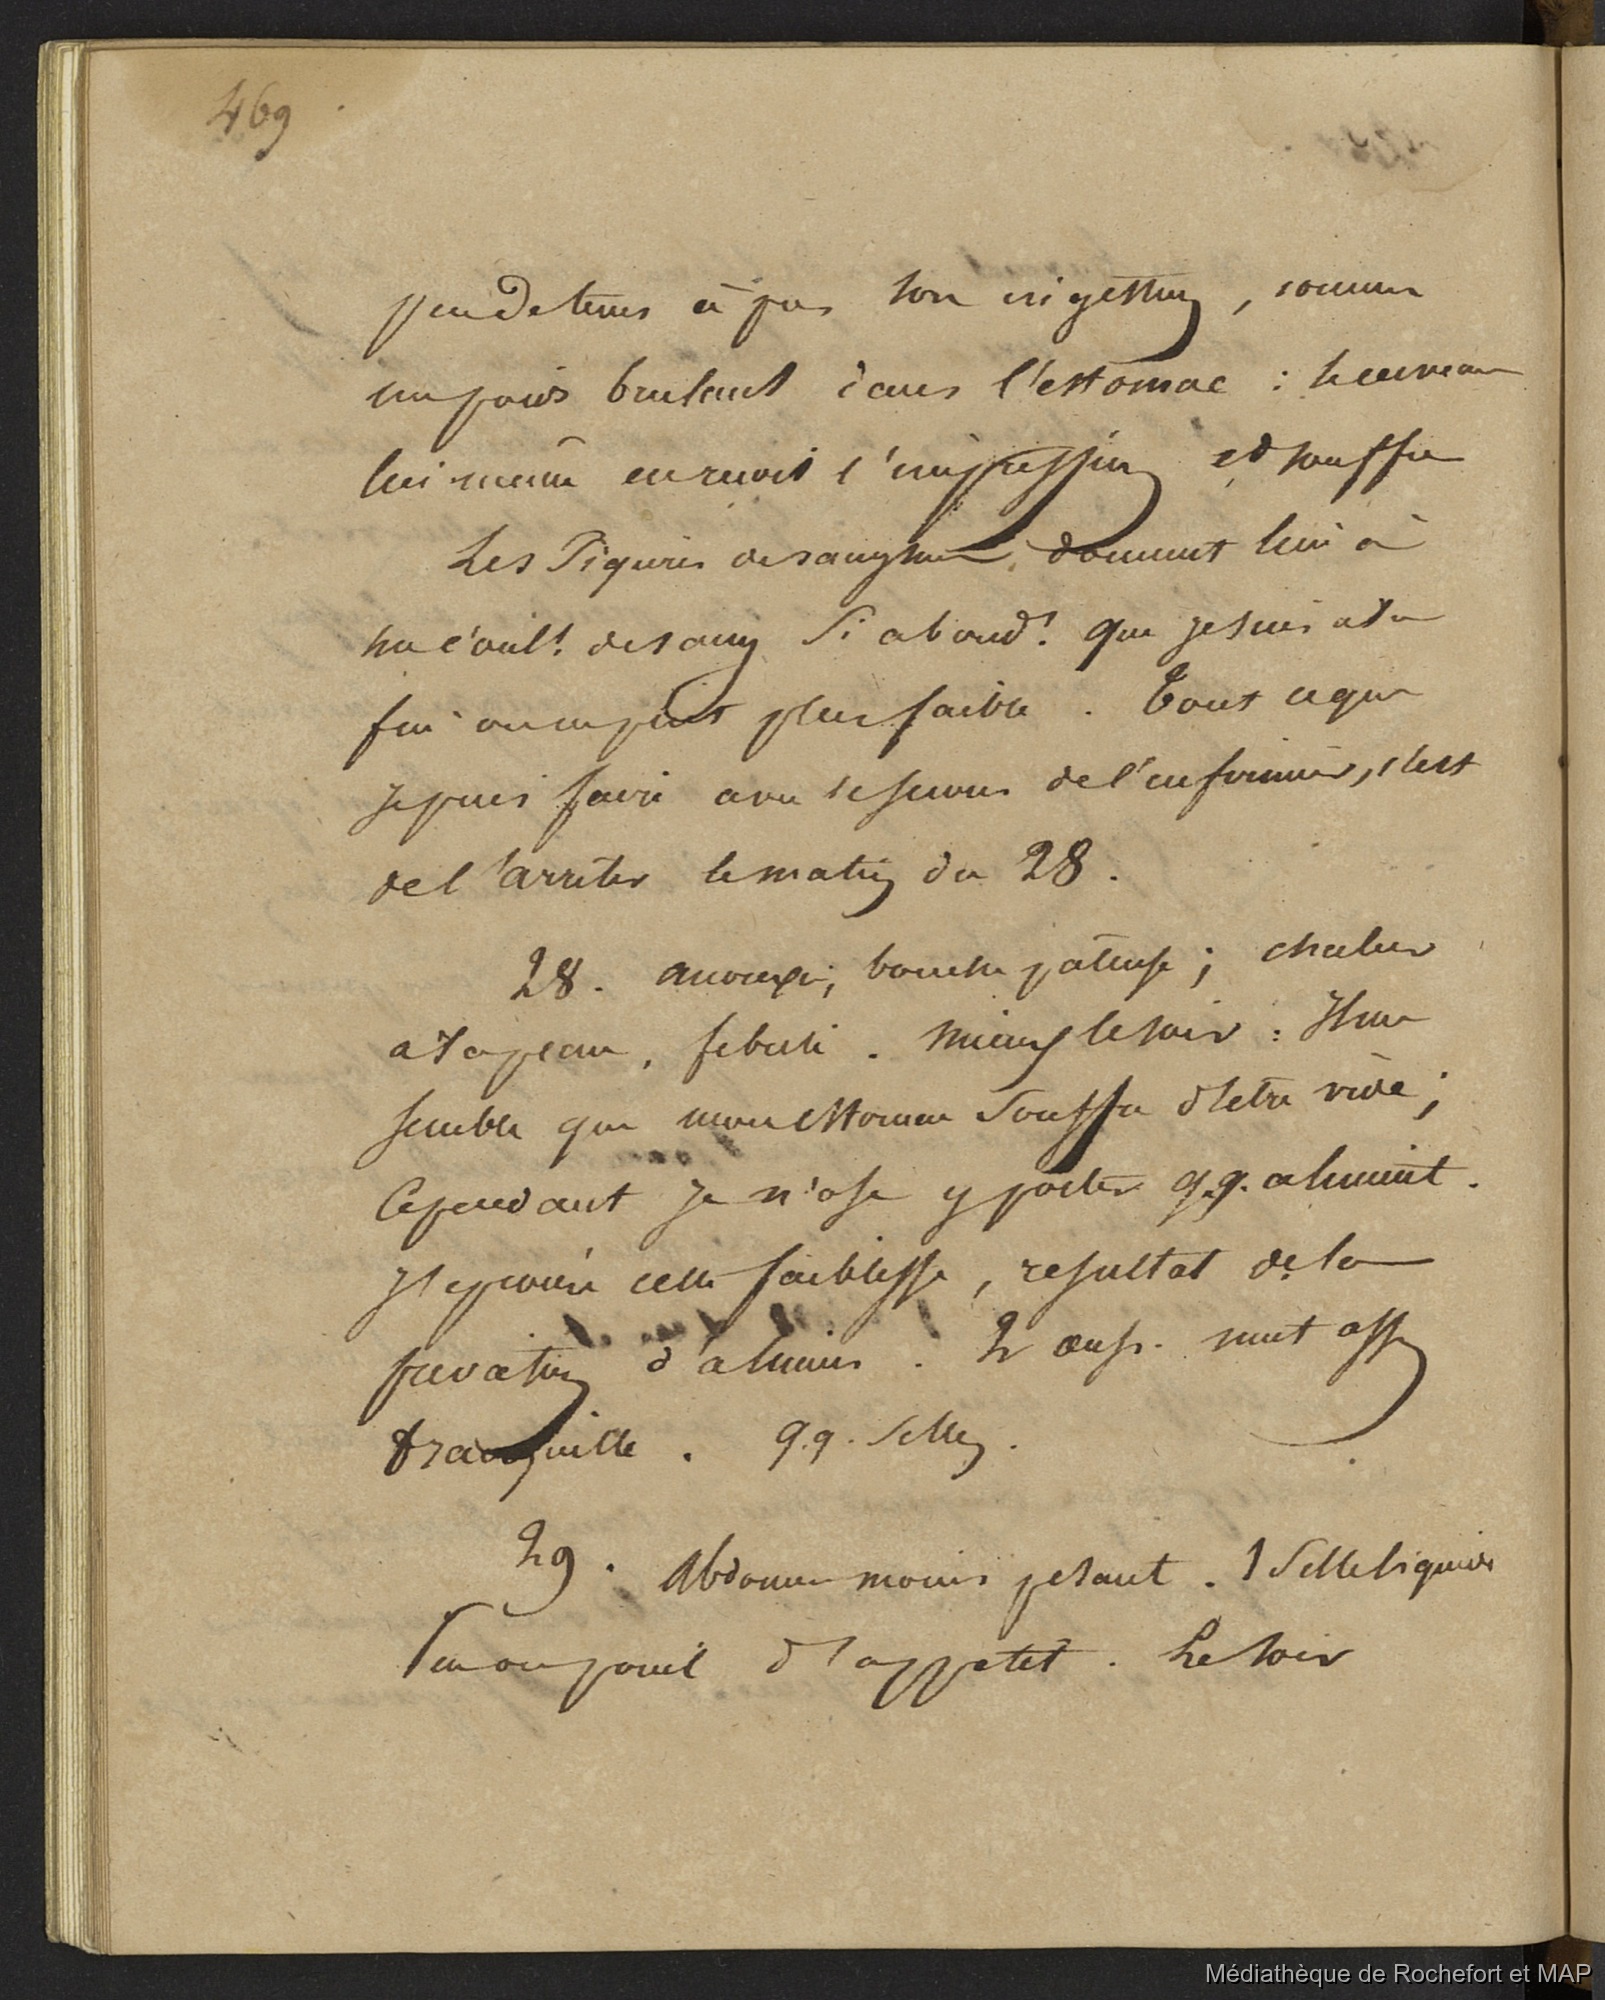 469
peu de tems après son ingestion, comme
un poids brulant dans l'estomac : le cerveau
lui même en reçoit l'impression et souffre
Les Piqures de sangsues, donnent lieu à
un écoult. de sang si abondt. que je suis a la
fin on ne peut plus faible. Tout ce que
je puis faire avec le secours de l'infirmier, c'est
de l'arrêter le matin du 28.
28. anorexie, bouche pâteuse ; chaleur
a la peau, febrile. Mieux le soir : Il me
semble que mon estomac souffre d'être vide ;
Cependant je n'ose y porter q.q. aliment.
J'éprouve cette faiblesse, resultat de la
privation d'alimens. 2 oeufs. nuit assez
tranquille. q.q. selles.
29. Abdomen moins pesant. 1 Selle liquide
un peu d'appetit. Le soir
Médiathèque de Rochefort et MAP